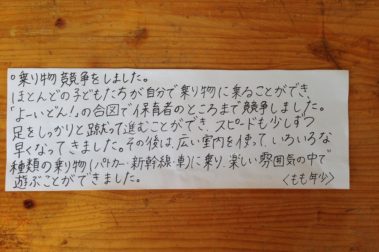 ○乗り物競争をしました。
ほとんどの子どもたちが自分で乗り物に乗ることができ、
「よーいどん！」の合図で保育者のところまで競争しました。
足をしっかりと蹴って進むことができ、スピードも少しずつ
早くなってきました。その後は、広い室内を使って、いろいろな
種類の乗り物(パトカー・新幹線・車)に乗り、楽しい雰囲気の中で
遊ぶことができました。
〈もも年少〉